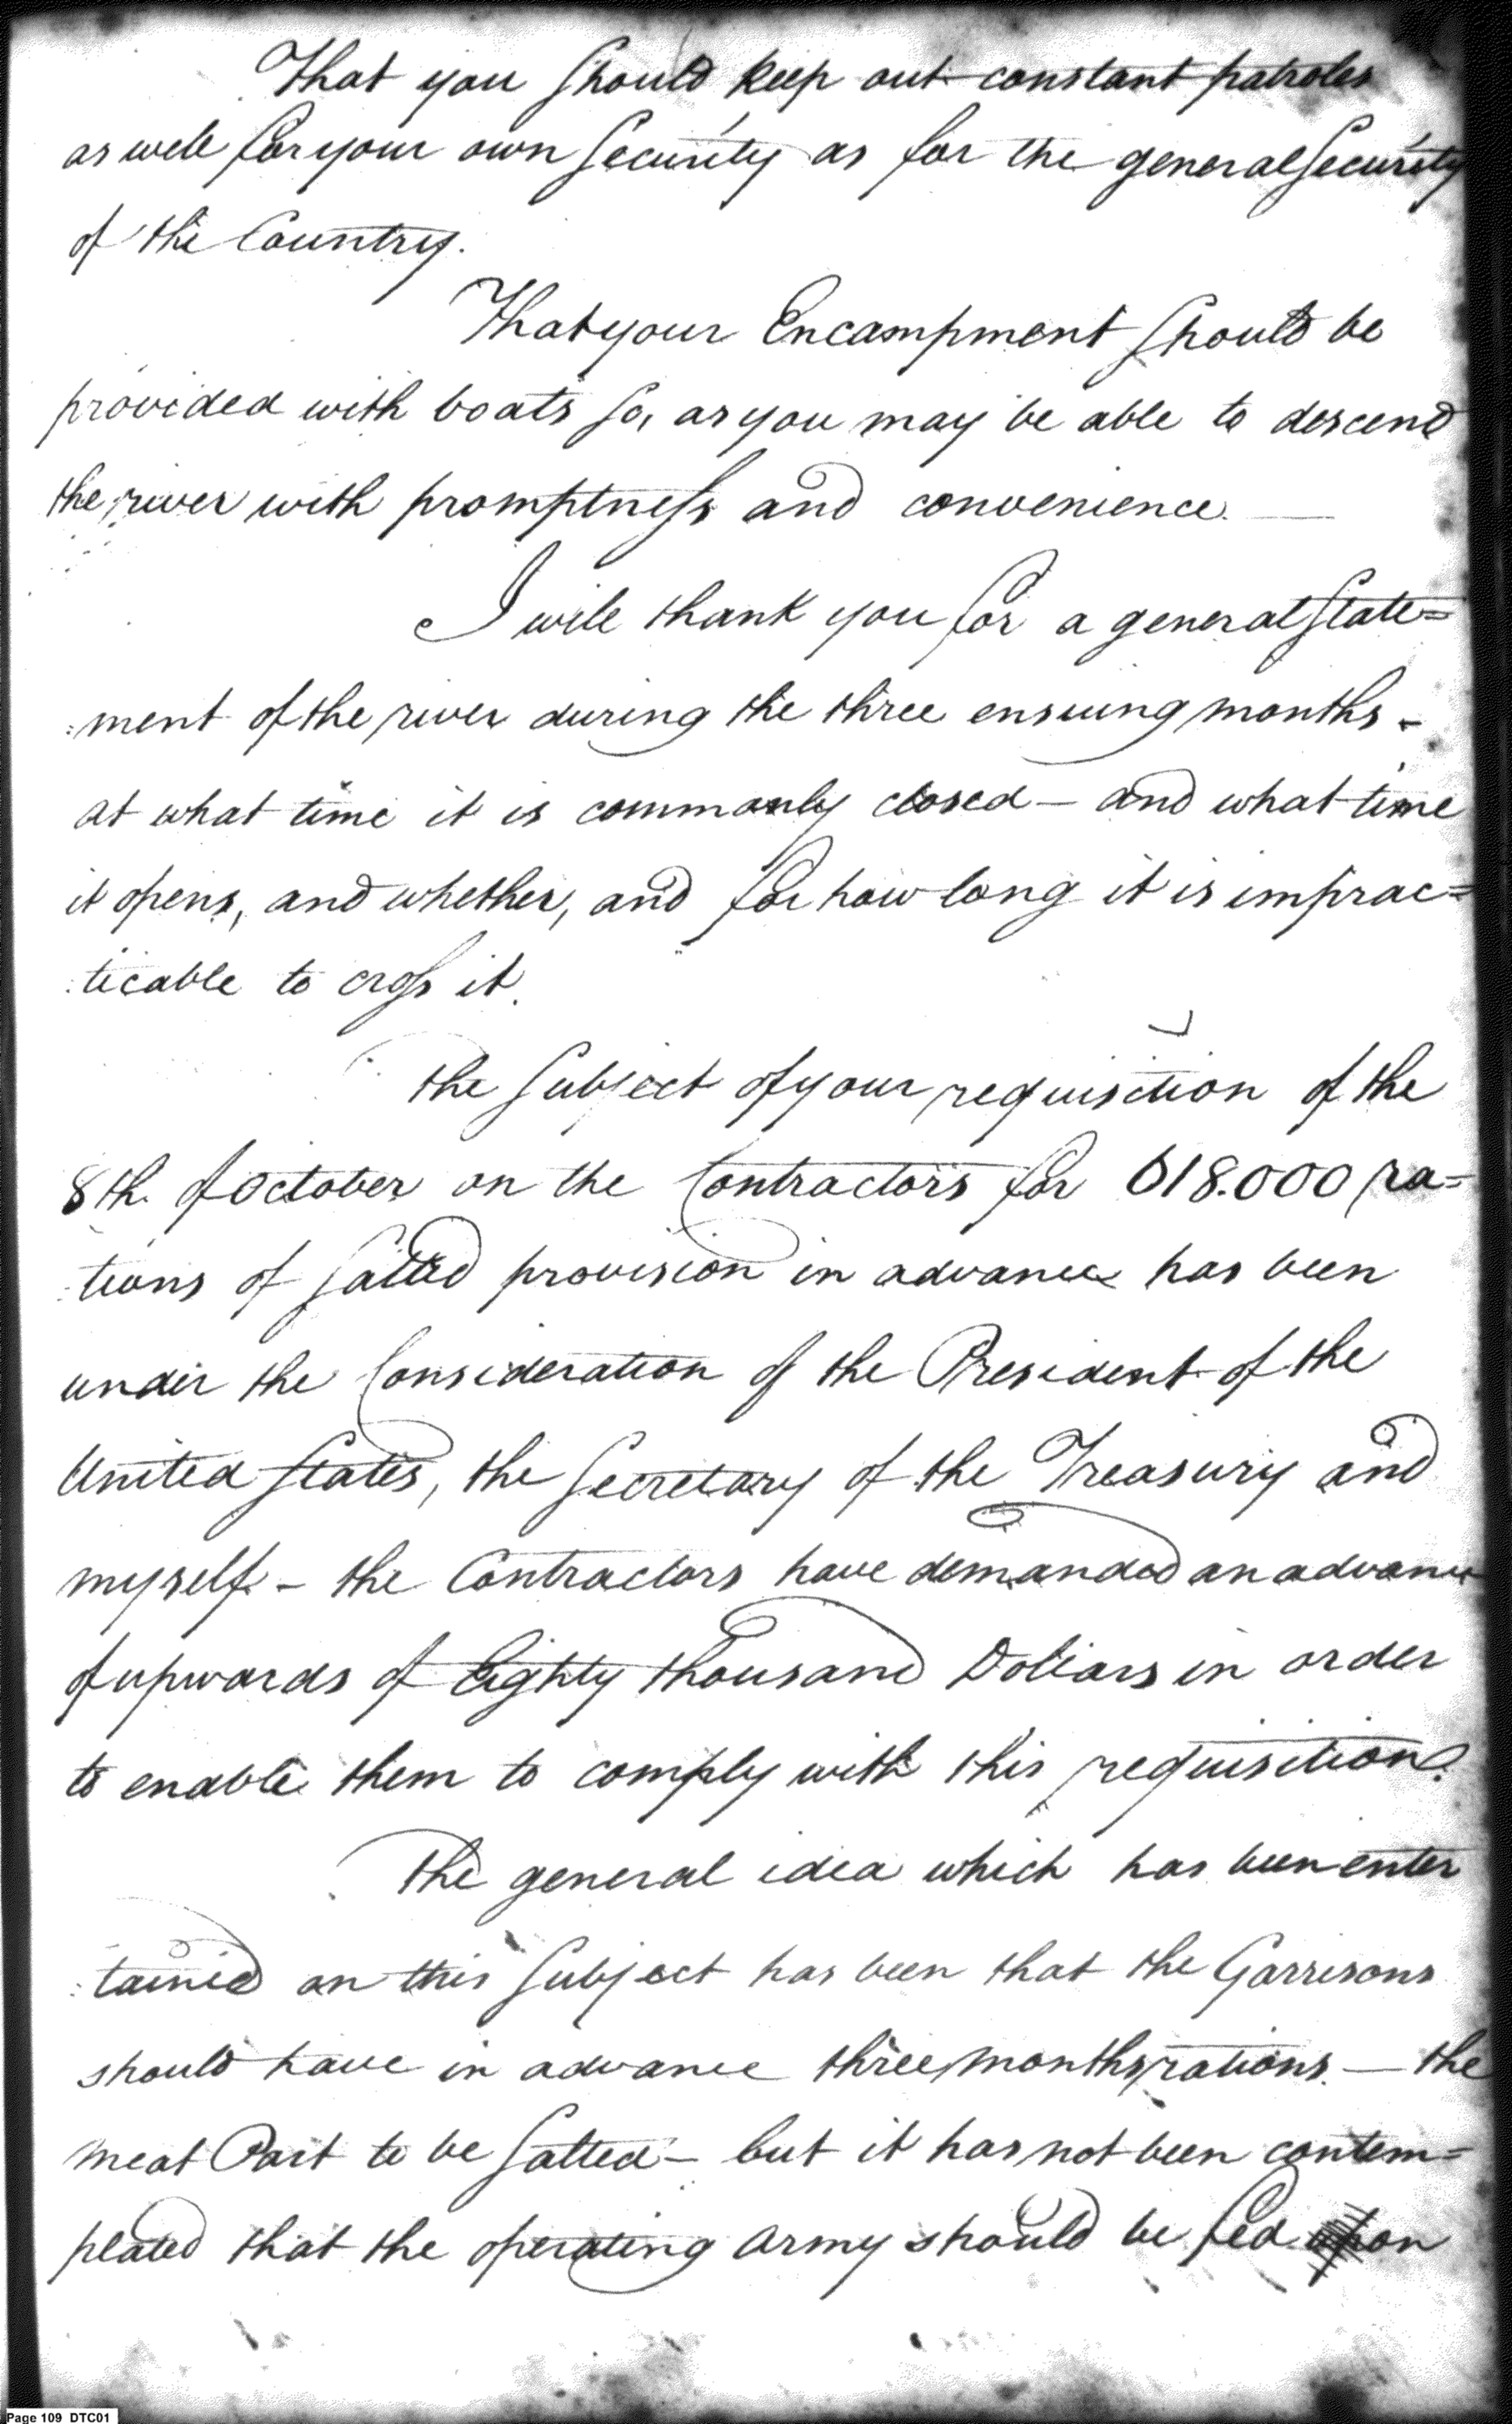 That you should keep out constant patroles
as well for your own security as for the general security
of the Country.
That your Encampment should be
provided with boats so, as you may be able to descend
the river with promptness and convenience. —
I will thank you for a general state=
:ment of the river during the three ensuing months -
at what time it is commonly closed — and what time
it opens, and whether, and for how long it is imprac=
:ticable to cross it.
The subject of your requisition of the
8th. of October on the Contractors for 618.000 ra=
:tions of salted provision in advance has been
under the Consideration of the President of the
United States, the Secretary of the Treasury and
myself. - the Contractors have demanded an advance
of upwards of Eighty thousand Dollars in order
to enable them to comply with this requisition.
The general idea which has been enter
:tained on this subject has been that the Garrisons
should have in advance three months rations. — the
meat Part to be salted - but it has not been contem=
plated that the operating army should be fed on
Page 109 DTC01